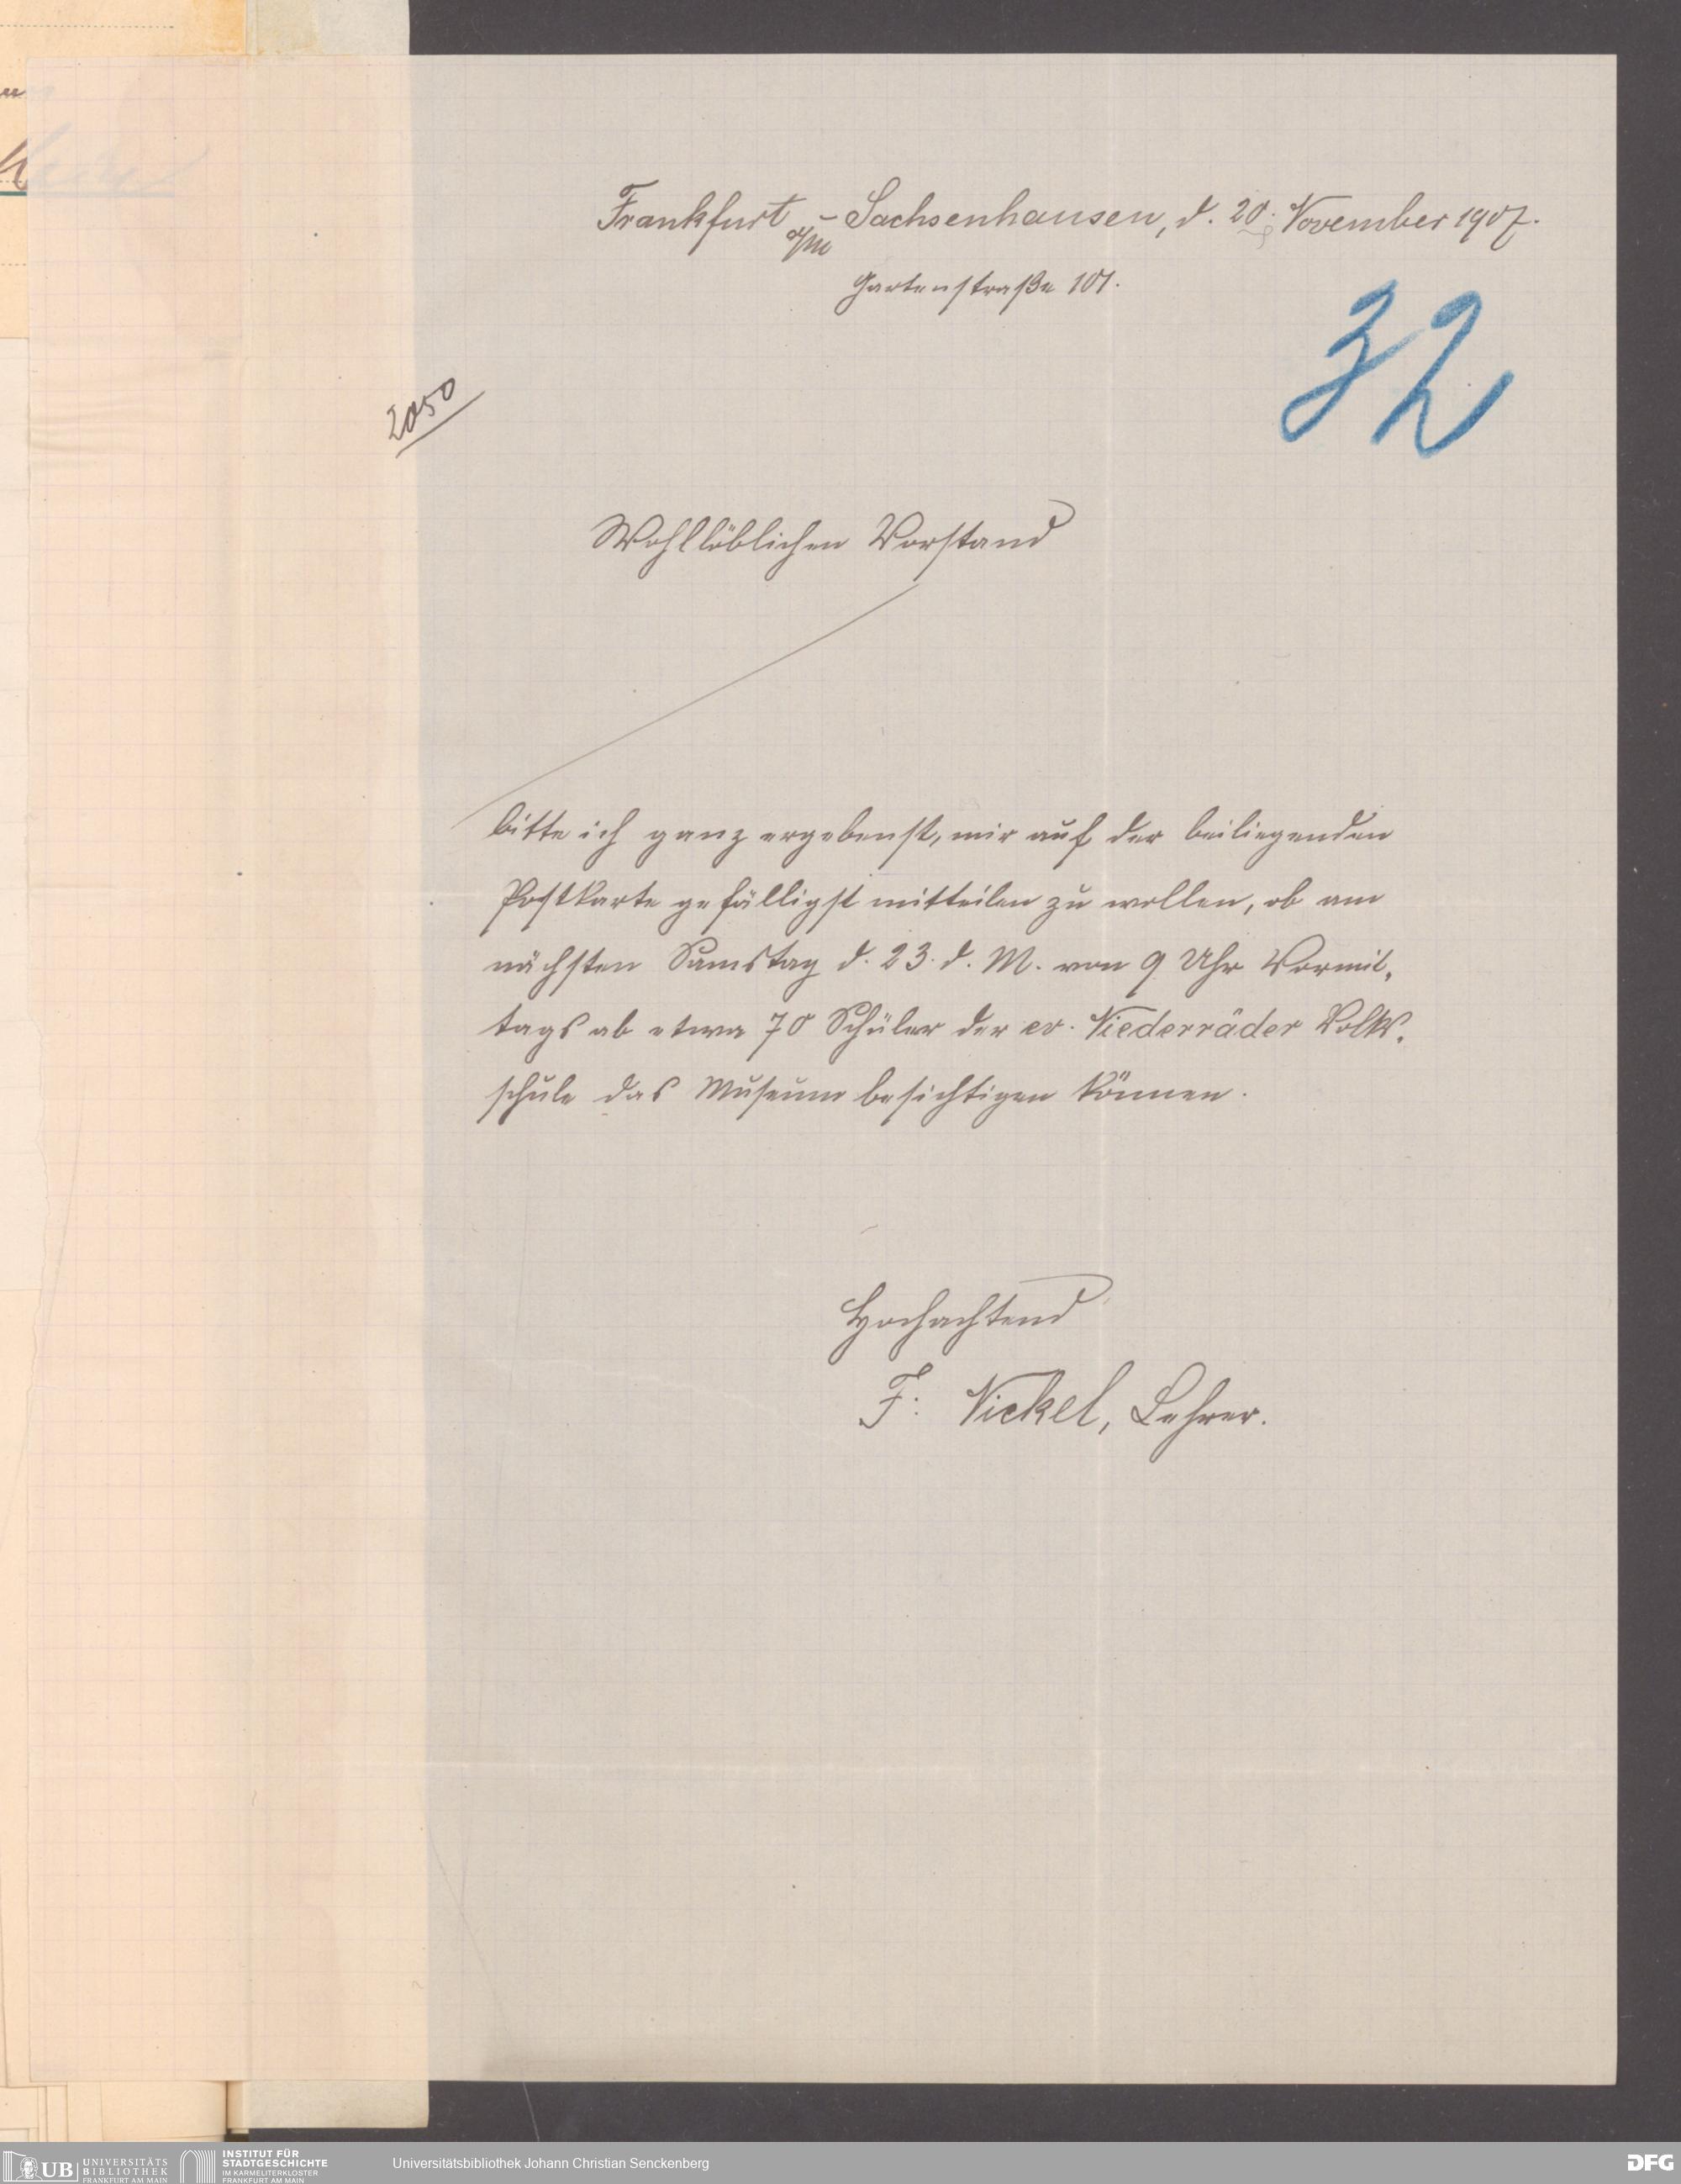 Frankfurt a/M - Sachsenhausen, d. 20. November 1907.
Gartenstraße 101.
32
2050
Wohllöblichen Vorstand
bitte ich ganz ergebenst, mir auf der beiliegenden
Postkarte gefälligst mitteilen zu wollen, ob am
nächsten Samstag d. 23. d. M. von 9 Uhr Vormit-
tags ab etwa 70 Schüler der ev. Niederräder Volks-
schule das Museum besichtigen können.
Hochachtend
F. Nickel, Lehrer.
UB UNIVERSITÄTS
BIBLIOTHEK
FRANKFURT AM MAIN
INSTITUT FÜR
STADTGESCHICHTE
IM KARMELITERKLOSTER
FRANKFURT AM MAIN
Universitätsbibliothek Johann Christian Senckenberg
DFG